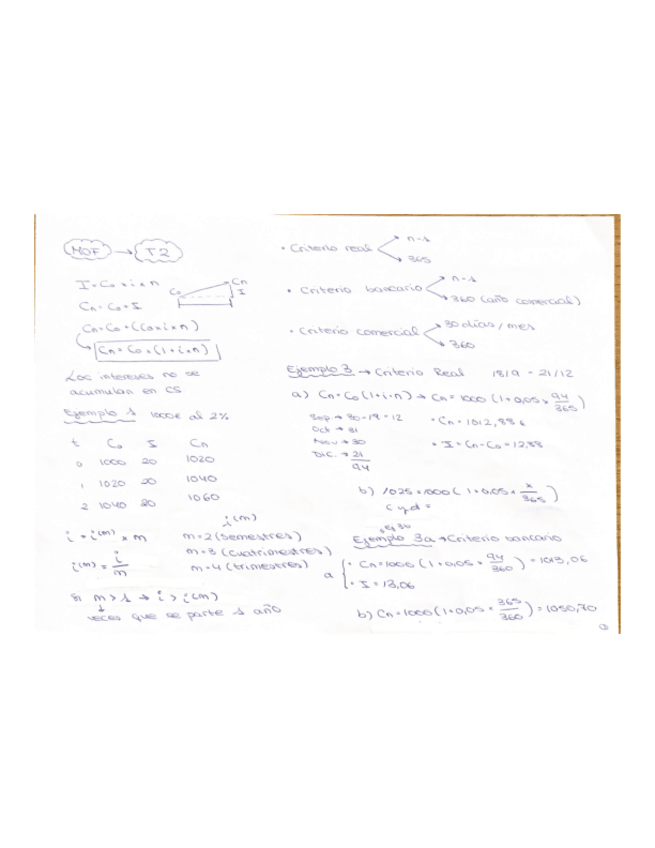 MOF → T2
I = Co × i × n
Co
Cn
I
Cn = Co + I
Cn = Co + (Co × i × n)
Cn = Co × (1 + i × n)
Los intereses no se
acumulan en CS
Ejemplo 1 1000€ al 2%
t Co I Cn
0 1000 20 1020
1 1020 20 1040
2 1040 20 1060
i(m)
i = i(m) × m m=2 (semestres)
m=3 (cuatrimestres)
i(m) = i/m m=4 (trimestres)
Si m>1 → i > i(m)
veces que se parte 1 año
• Criterio real n-1
365
• Criterio bancario n-1
360 (año comercial)
• Criterio comercial 30 días/mes
360
Ejemplo 3 → Criterio Real 18/9 - 21/12
a) Cn = Co (1+i·n) → Cn = 1000 (1+0,05 × 94/365)
Sep → 30-18 = 12 • Cn = 1012,88€
Oct → 31
Nov → 30 • I = Cn - Co = 12,88
Dic. → 21
94
b) 1025 = 1000 (1+0,05 × x/365)
Ejemplo 3a → Criterio bancario
a • Cn = 1000 (1+0,05 × 94/360) = 1013,06
• I = 13,06
b) Cn = 1000 (1+0,05 × 365/360) = 1050,70